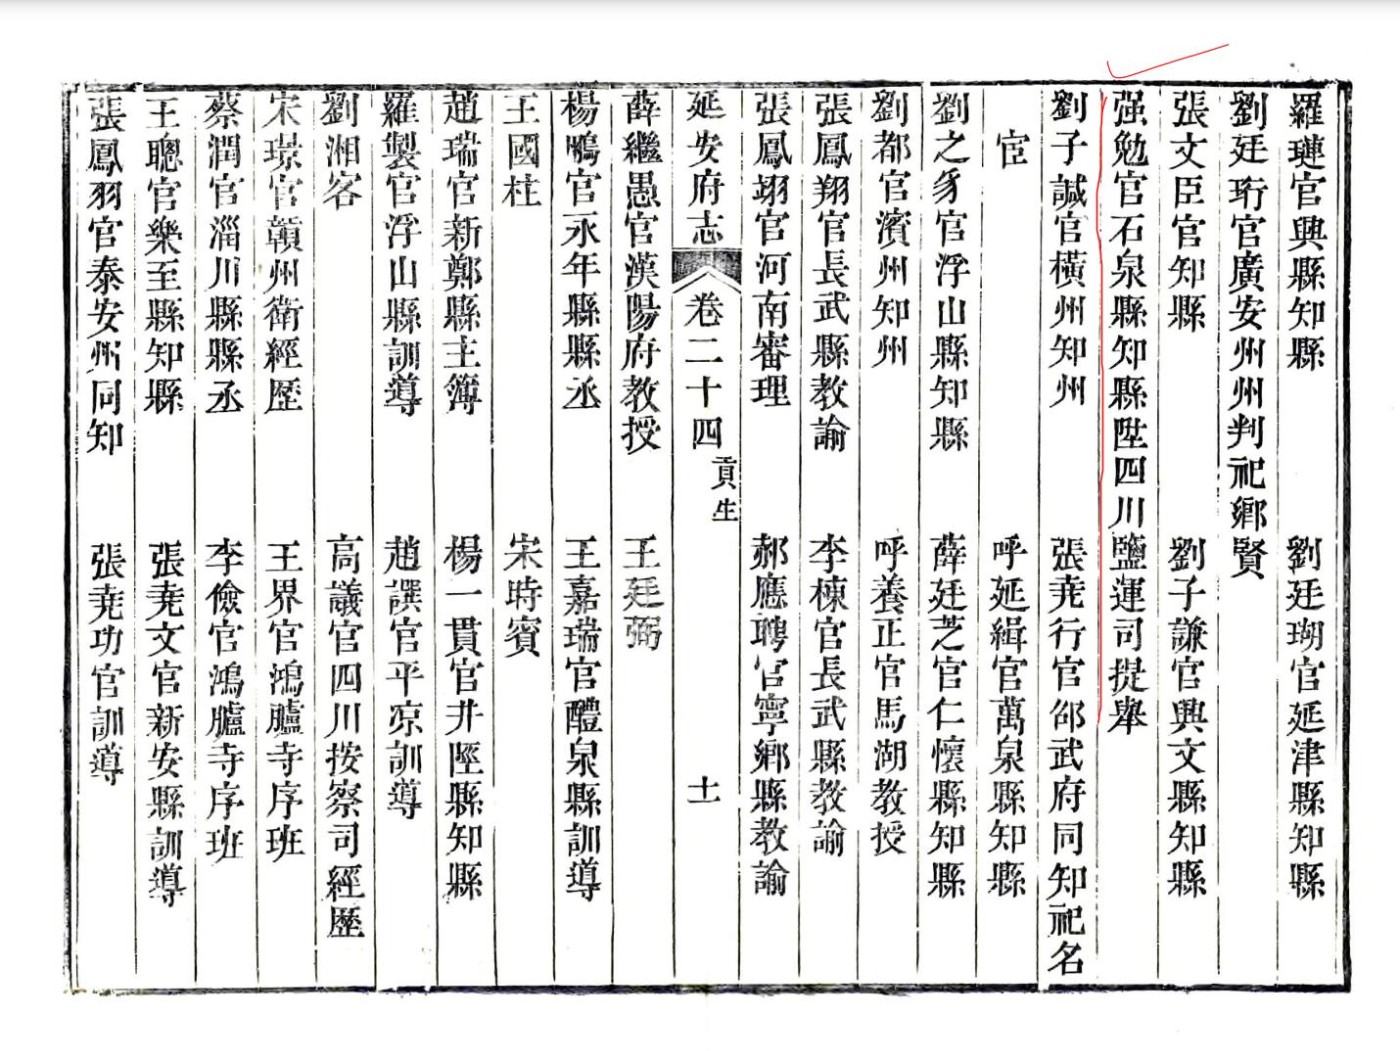 羅璉官興縣知縣　劉廷瑚官延津縣知縣
劉廷珩官廣安州州判祀鄉賢
張文臣官知縣　劉子謙官興文縣知縣
强勉官石泉縣知縣陞四川鹽運司提舉
劉子諴官橫州知州　張堯行官邵武府同知祀名
宦　呼延緝官萬泉縣知縣
劉之豸官浮山縣知縣　薛廷芝官仁懷縣知縣
劉都官濱州知州　呼養正官馬湖教授
張鳳翔官長武縣教諭　李棟官長武縣教諭
張鳳翊官河南審理　郝應聘官寧鄉縣教諭
延安府志　卷二十四　貢生　十
薛繼愚官漢陽府教授　王廷弼
楊鳴官永年縣縣丞　王嘉瑞官醴泉縣訓導
王國柱　宋時賓
趙瑞官新鄭縣主簿　楊一貫官井陘縣知縣
羅製官浮山縣訓導　趙譔官平凉訓導
劉湘客　高議官四川按察司經歷
宋璟官贛州衛經歷　王界官鴻臚寺序班
蔡潤官淄川縣縣丞　李儉官鴻臚寺序班
王聰官樂至縣知縣　張堯文官新安縣訓導
張鳳羽官泰安州同知　張堯功官訓導